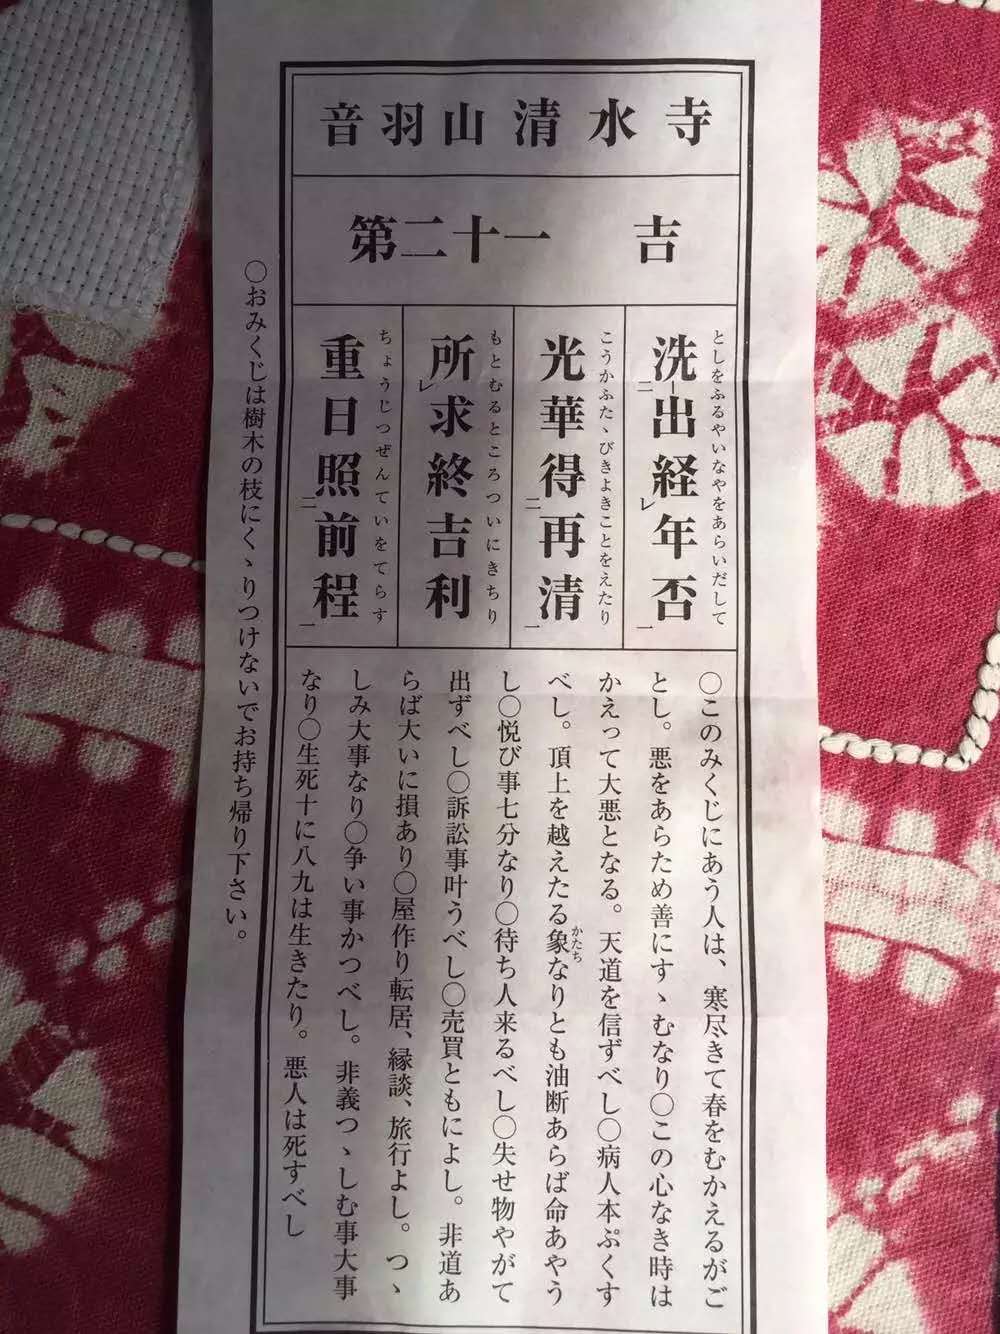 音羽山清水寺
第二十一 吉
としをふるやいなやをあらいだして
洗出経年否
二一レ一
こうかふたゝびきよきことをえたり
光華得再清
二一
もとむるところついにきちり
所求終吉利
レ
ちょうじつぜんていをてらす
重日照前程
二一
〇このみくじにあう人は、寒尽きて春をむかえるがご
とし。悪をあらため善にすゝむなり〇この心なき時は
かえって大悪となる。天道を信ずべし〇病人本ぷくす
べし。頂上を越えたる象なりとも油断あらば命あやう
かたち
し〇悦び事七分なり〇待ち人来るべし〇失せ物やがて
出ずべし〇訴訟事叶うべし〇売買ともによし。非道あ
らば大いに損あり〇屋作り転居、縁談、旅行よし。つゝ
しみ大事なり〇争い事かつべし。非義つゝしむ事大事
なり〇生死十に八九は生きたり。悪人は死すべし
〇おみくじは樹木の枝にくゝりつけないでお持ち帰り下さい。